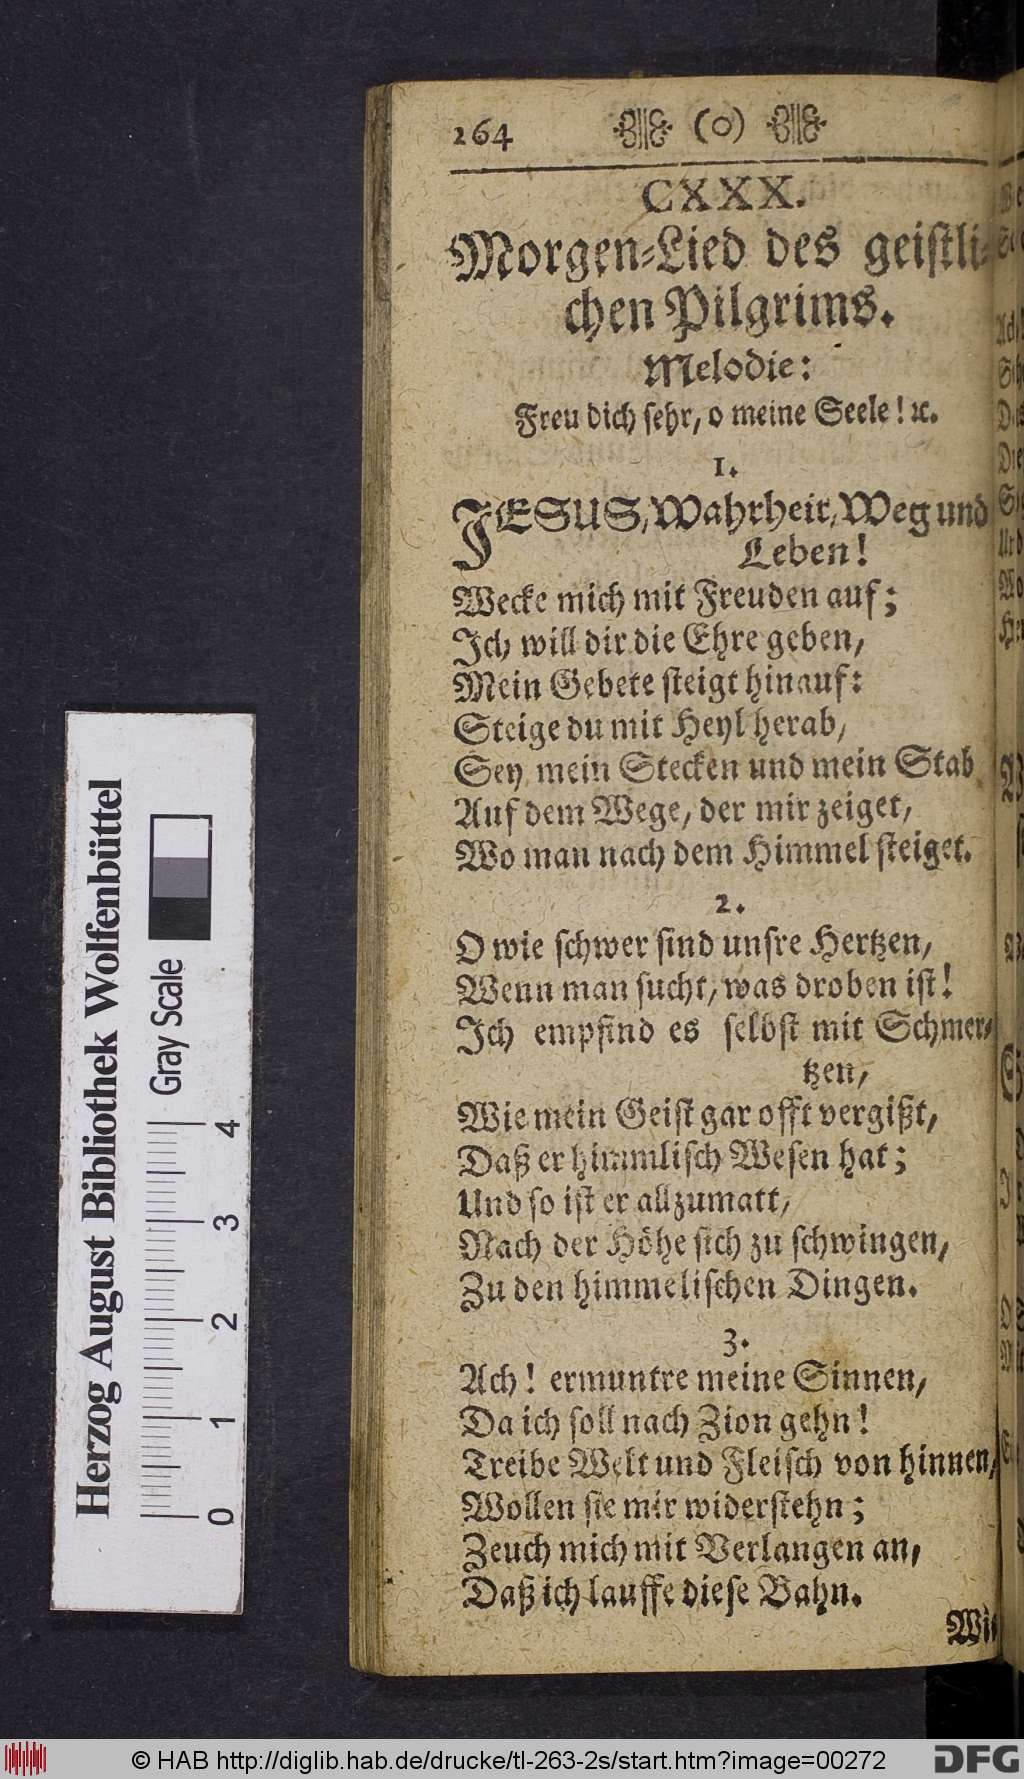 264 (o)
CXXX.
Morgen-Lied des geistli-
chen Pilgrims.
Melodie:
Freu dich sehr, o meine Seele! ꝛc.
1.
JESUS, Wahrheit, Weg und
Leben!
Wecke mich mit Freuden auf;
Ich will dir die Ehre geben,
Mein Gebete steigt hinauf:
Steige du mit Heyl herab,
Sey mein Stecken und mein Stab
Auf dem Wege, der mir zeiget,
Wo man nach dem Himmel steiget.
2.
O wie schwer sind unsre Hertzen,
Wenn man sucht, was droben ist!
Ich empfind es selbst mit Schmer-
tzen,
Wie mein Geist gar offt vergißt,
Daß er himmlisch Wesen hat;
Und so ist er allzumatt,
Nach der Höhe sich zu schwingen,
Zu den himmelischen Dingen.
3.
Ach! ermuntre meine Sinnen,
Da ich soll nach Zion gehn!
Treibe Welt und Fleisch von hinnen,
Wollen sie mir widerstehn;
Zeuch mich mit Verlangen an,
Daß ich lauffe diese Bahn.
Herzog August Bibliothek Wolfenbüttel
Gray Scale
0 1 2 3 4
© HAB http://diglib.hab.de/drucke/tl-263-2s/start.htm?image=00272
DFG